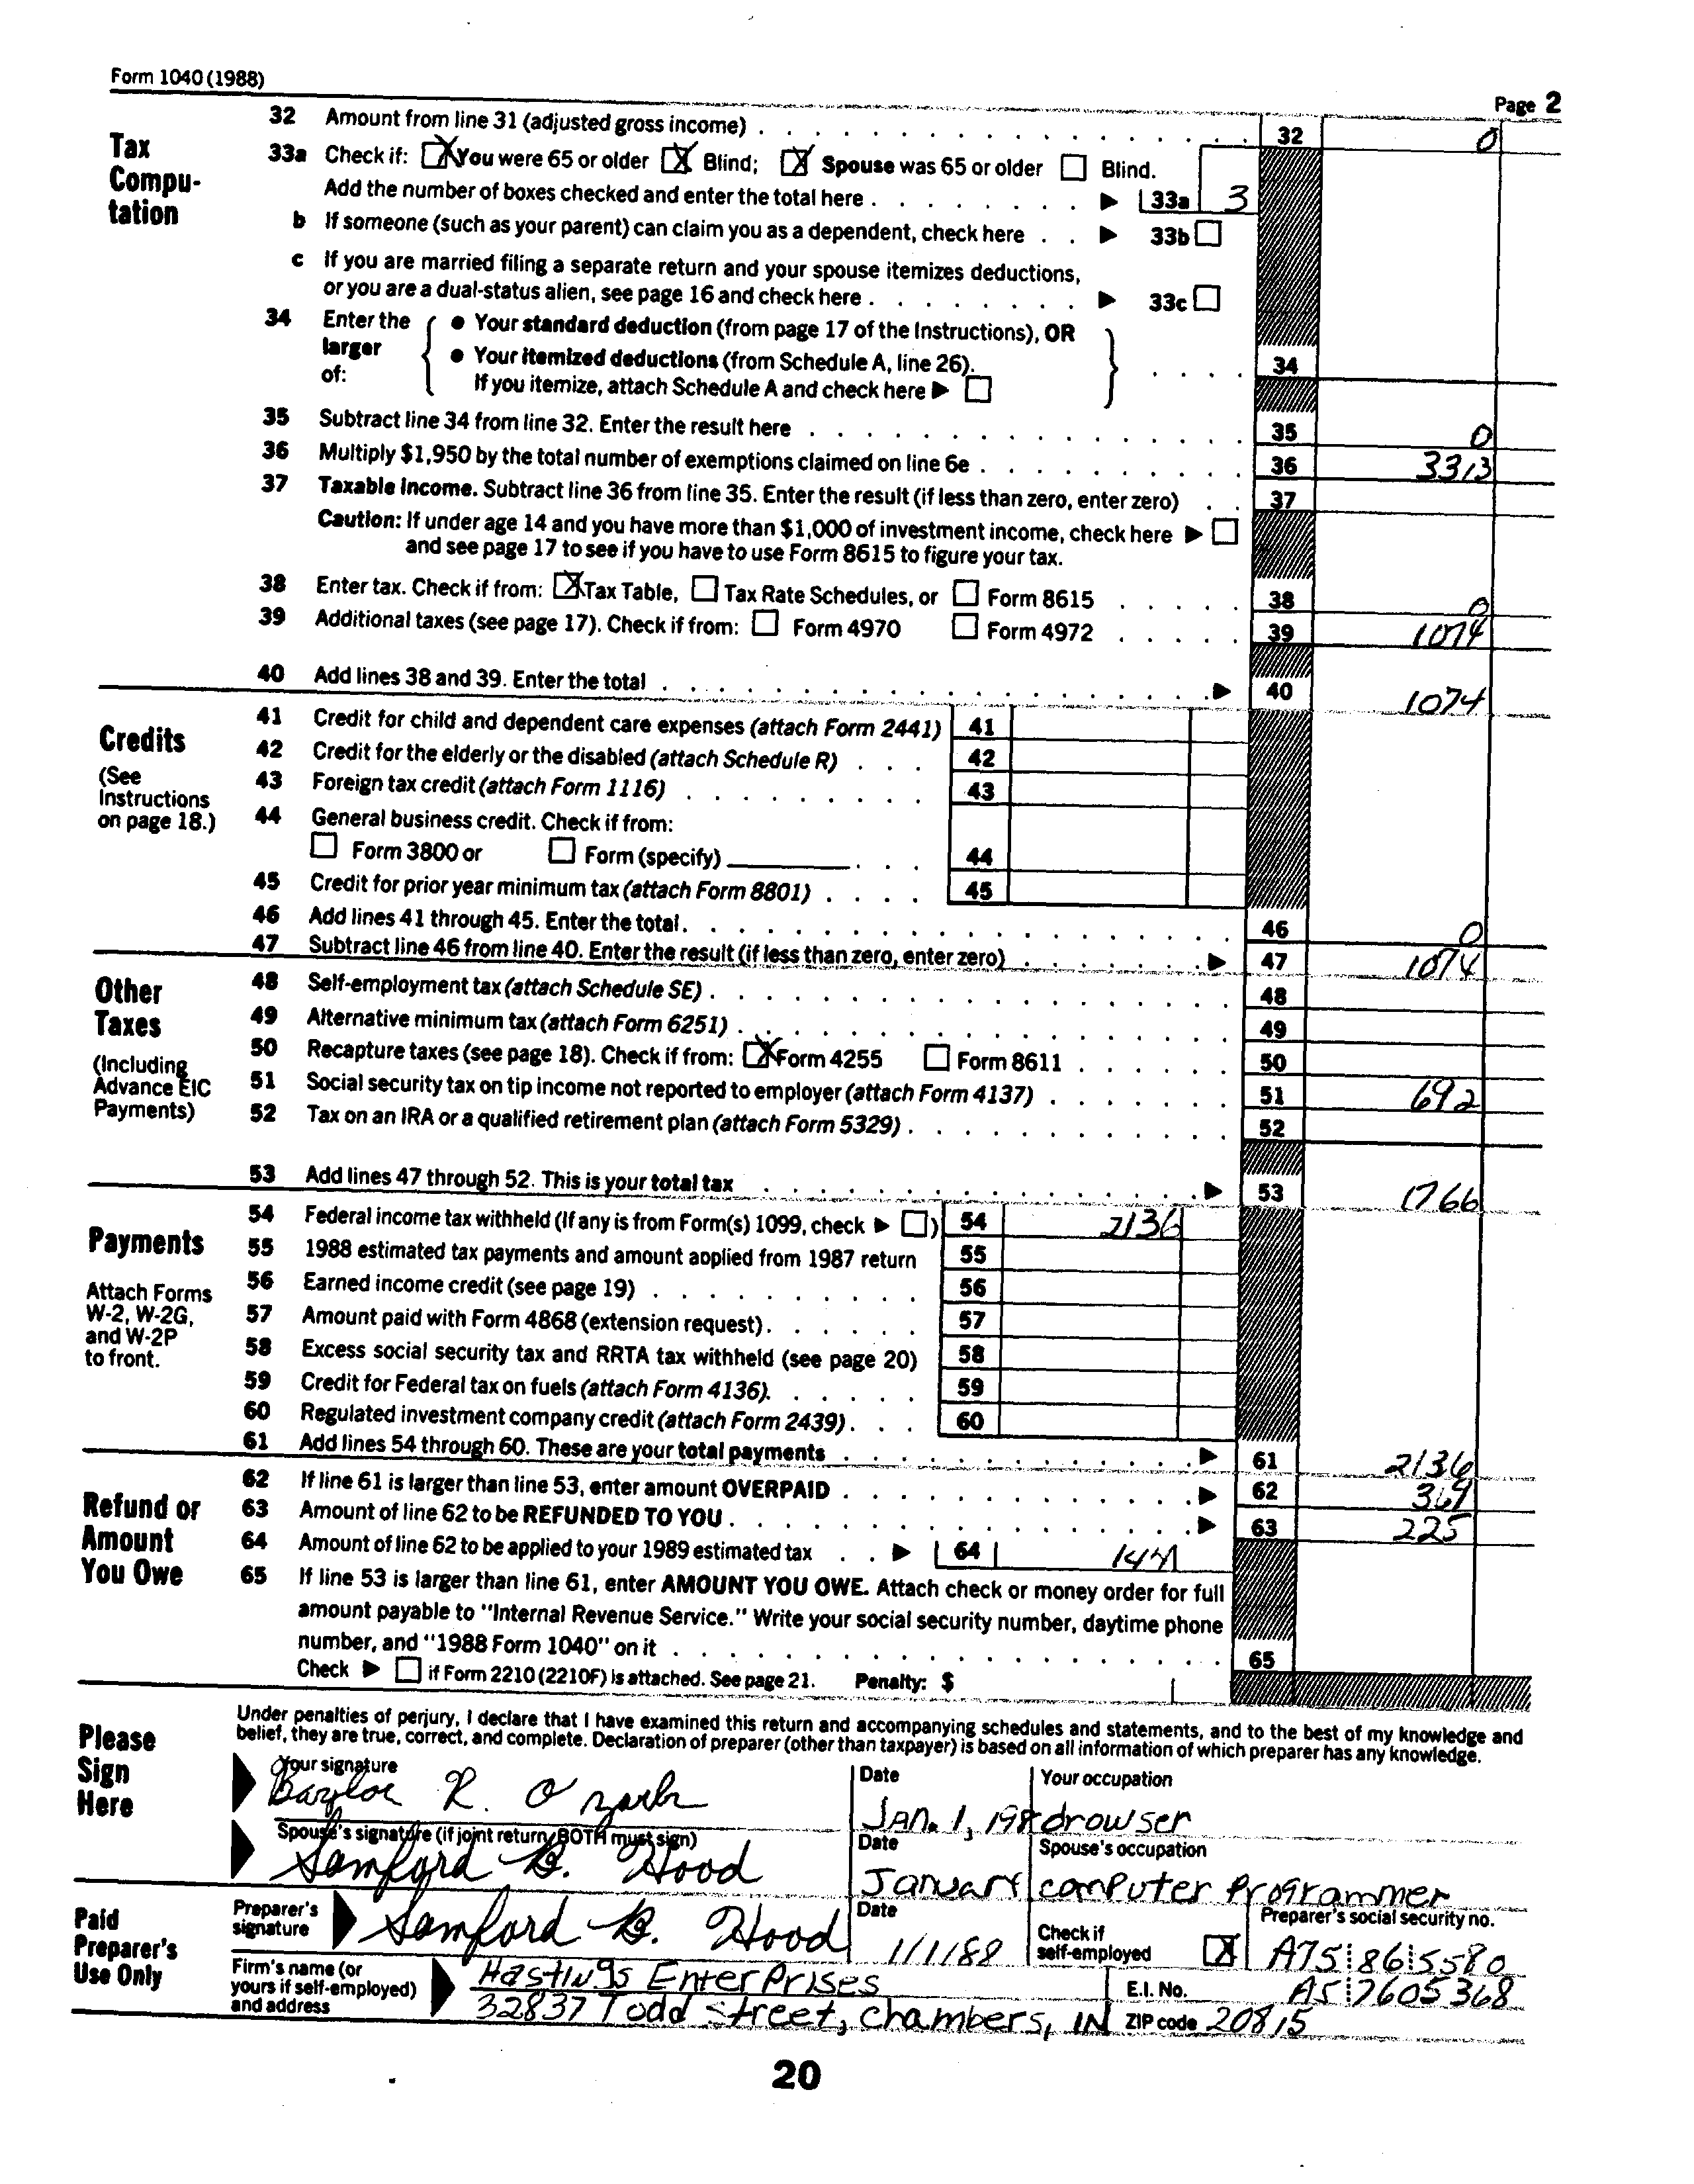 Form 1040 (1988)
Page 2
Tax Compu-tation
32 Amount from line 31 (adjusted gross income) 32 0
33a Check if: X You were 65 or older X Blind; X Spouse was 65 or older Blind.
Add the number of boxes checked and enter the total here 33a 3
b If someone (such as your parent) can claim you as a dependent, check here 33b
c If you are married filing a separate return and your spouse itemizes deductions,
or you are a dual-status alien, see page 16 and check here 33c
34 Enter the larger of:
• Your standard deduction (from page 17 of the Instructions), OR
• Your itemized deductions (from Schedule A, line 26).
If you itemize, attach Schedule A and check here 34
35 Subtract line 34 from line 32. Enter the result here 35 0
36 Multiply $1,950 by the total number of exemptions claimed on line 6e 36 3313
37 Taxable income. Subtract line 36 from line 35. Enter the result (if less than zero, enter zero) 37
Caution: If under age 14 and you have more than $1,000 of investment income, check here
and see page 17 to see if you have to use Form 8615 to figure your tax.
38 Enter tax. Check if from: X Tax Table, Tax Rate Schedules, or Form 8615 38 0
39 Additional taxes (see page 17). Check if from: Form 4970 Form 4972 39 1074
40 Add lines 38 and 39. Enter the total 40 1074
Credits
(See Instructions on page 18.)
41 Credit for child and dependent care expenses (attach Form 2441) 41
42 Credit for the elderly or the disabled (attach Schedule R) 42
43 Foreign tax credit (attach Form 1116) 43
44 General business credit. Check if from:
Form 3800 or Form (specify) 44
45 Credit for prior year minimum tax (attach Form 8801) 45
46 Add lines 41 through 45. Enter the total. 46 0
47 Subtract line 46 from line 40. Enter the result (if less than zero, enter zero) 47 1074
Other Taxes
(Including Advance EIC Payments)
48 Self-employment tax (attach Schedule SE) 48
49 Alternative minimum tax (attach Form 6251) 49
50 Recapture taxes (see page 18). Check if from: X Form 4255 Form 8611 50
51 Social security tax on tip income not reported to employer (attach Form 4137) 51 692
52 Tax on an IRA or a qualified retirement plan (attach Form 5329) 52
53 Add lines 47 through 52. This is your total tax 53 1766
Payments
Attach Forms W-2, W-2G, and W-2P to front.
54 Federal income tax withheld (If any is from Form(s) 1099, check ) 54 2136
55 1988 estimated tax payments and amount applied from 1987 return 55
56 Earned income credit (see page 19) 56
57 Amount paid with Form 4868 (extension request) 57
58 Excess social security tax and RRTA tax withheld (see page 20) 58
59 Credit for Federal tax on fuels (attach Form 4136). 59
60 Regulated investment company credit (attach Form 2439) 60
61 Add lines 54 through 60. These are your total payments 61 2136
Refund or Amount You Owe
62 If line 61 is larger than line 53, enter amount OVERPAID 62 369
63 Amount of line 62 to be REFUNDED TO YOU 63 225
64 Amount of line 62 to be applied to your 1989 estimated tax 64 144
65 If line 53 is larger than line 61, enter AMOUNT YOU OWE. Attach check or money order for full
amount payable to "Internal Revenue Service." Write your social security number, daytime phone
number, and "1988 Form 1040" on it 65
Check if Form 2210 (2210F) is attached. See page 21. Penalty: $
Please Sign Here
Under penalties of perjury, I declare that I have examined this return and accompanying schedules and statements, and to the best of my knowledge and
belief, they are true, correct, and complete. Declaration of preparer (other than taxpayer) is based on all information of which preparer has any knowledge.
Your signature Date Your occupation
Baylor R. Ozark Jan. 1, 198 drowser
Spouse's signature (if joint return, BOTH must sign) Date Spouse's occupation
Samford B. Hood January computer Programmer
Paid Preparer's Use Only
Preparer's signature Samford B. Hood Date 1/1/88 Check if self-employed X Preparer's social security no. A75 86 5580
Firm's name (or yours if self-employed) and address Hastings Enterprises E.I. No. A5 7605368
32837 Todd Street, Chambers, IN ZIP code 20815
20